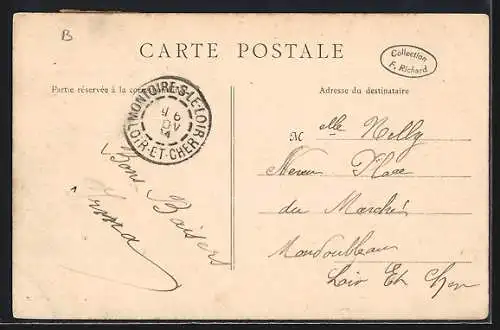 B
CARTE POSTALE
Collection
F. Richard
Partie réservée à la
Adresse du destinataire
MONTOIRE-S-LE-LOIR
LOIR-ET-CHER
Melle Nelly
Place
du Marché
Mondoubleau
Loir Et Cher
Bons Baisers